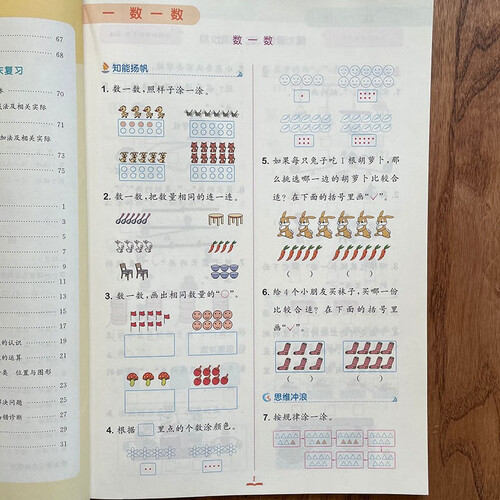 一 数一数
67
68
复习
70
法及相关实际
71
加法及相关实际
73
75
1
3
5
7
9
11
13
17
的认识
19
的运算
21
类 位置与图形
23
25
解决问题
25
错诊断
29
31
数一数
知能扬帆
1. 数一数,照样子涂一涂。
2. 数一数,把数量相同的连一连。
3. 数一数,画出相同数量的“○”。
4. 根据□里点的个数涂颜色。
5. 如果每只兔子吃1根胡萝卜,那
么挑选哪一边的胡萝卜比较合
适?在下面的括号里画“✓”。
( ) ( )
6. 给4个小朋友买袜子,买哪一份
比较合适?在下面的括号里
画“✓”。
( ) ( )
思维冲浪
7. 按规律涂一涂。
1